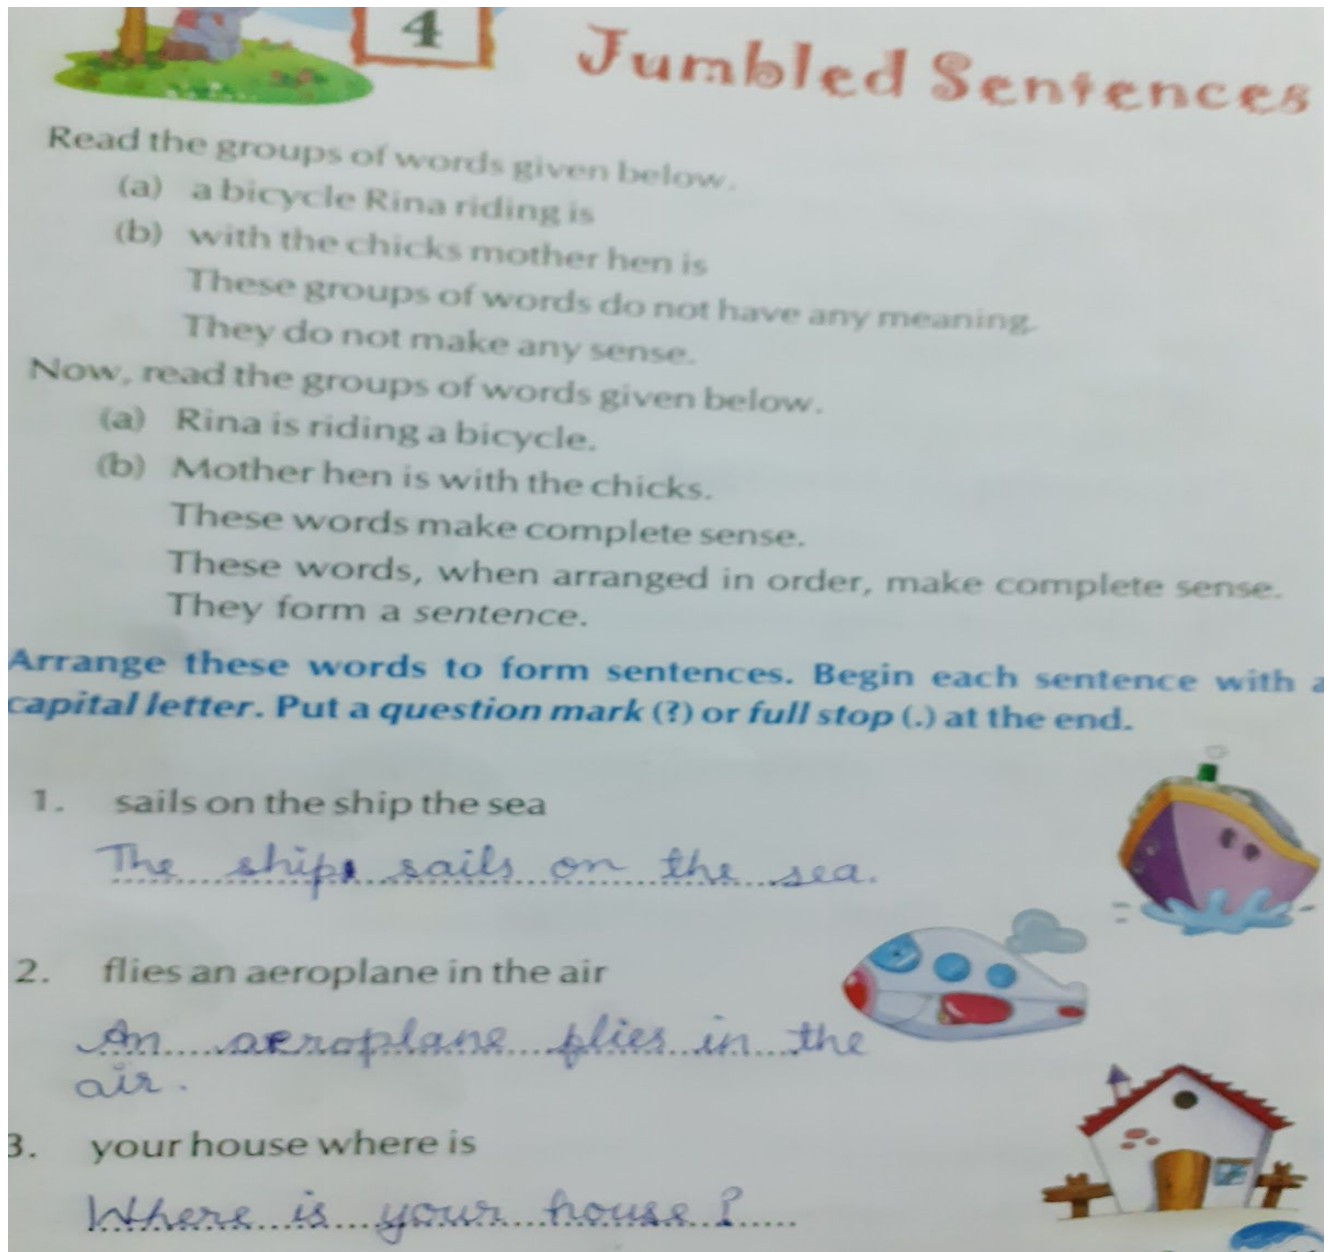 4
Jumbled Sentences
Read the groups of words given below.
(a) a bicycle Rina riding is
(b) with the chicks mother hen is
These groups of words do not have any meaning.
They do not make any sense.
Now, read the groups of words given below.
(a) Rina is riding a bicycle.
(b) Mother hen is with the chicks.
These words make complete sense.
These words, when arranged in order, make complete sense.
They form a sentence.
Arrange these words to form sentences. Begin each sentence with a
capital letter. Put a question mark (?) or full stop (.) at the end.
1. sails on the ship the sea
The ship sails on the sea.
2. flies an aeroplane in the air
An aeroplane flies in the
air.
3. your house where is
Where is your house?